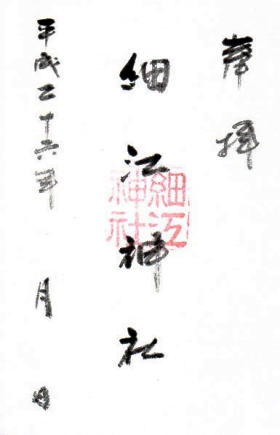 奉拝
細江神社
細江神社
平成二十六年 月 日